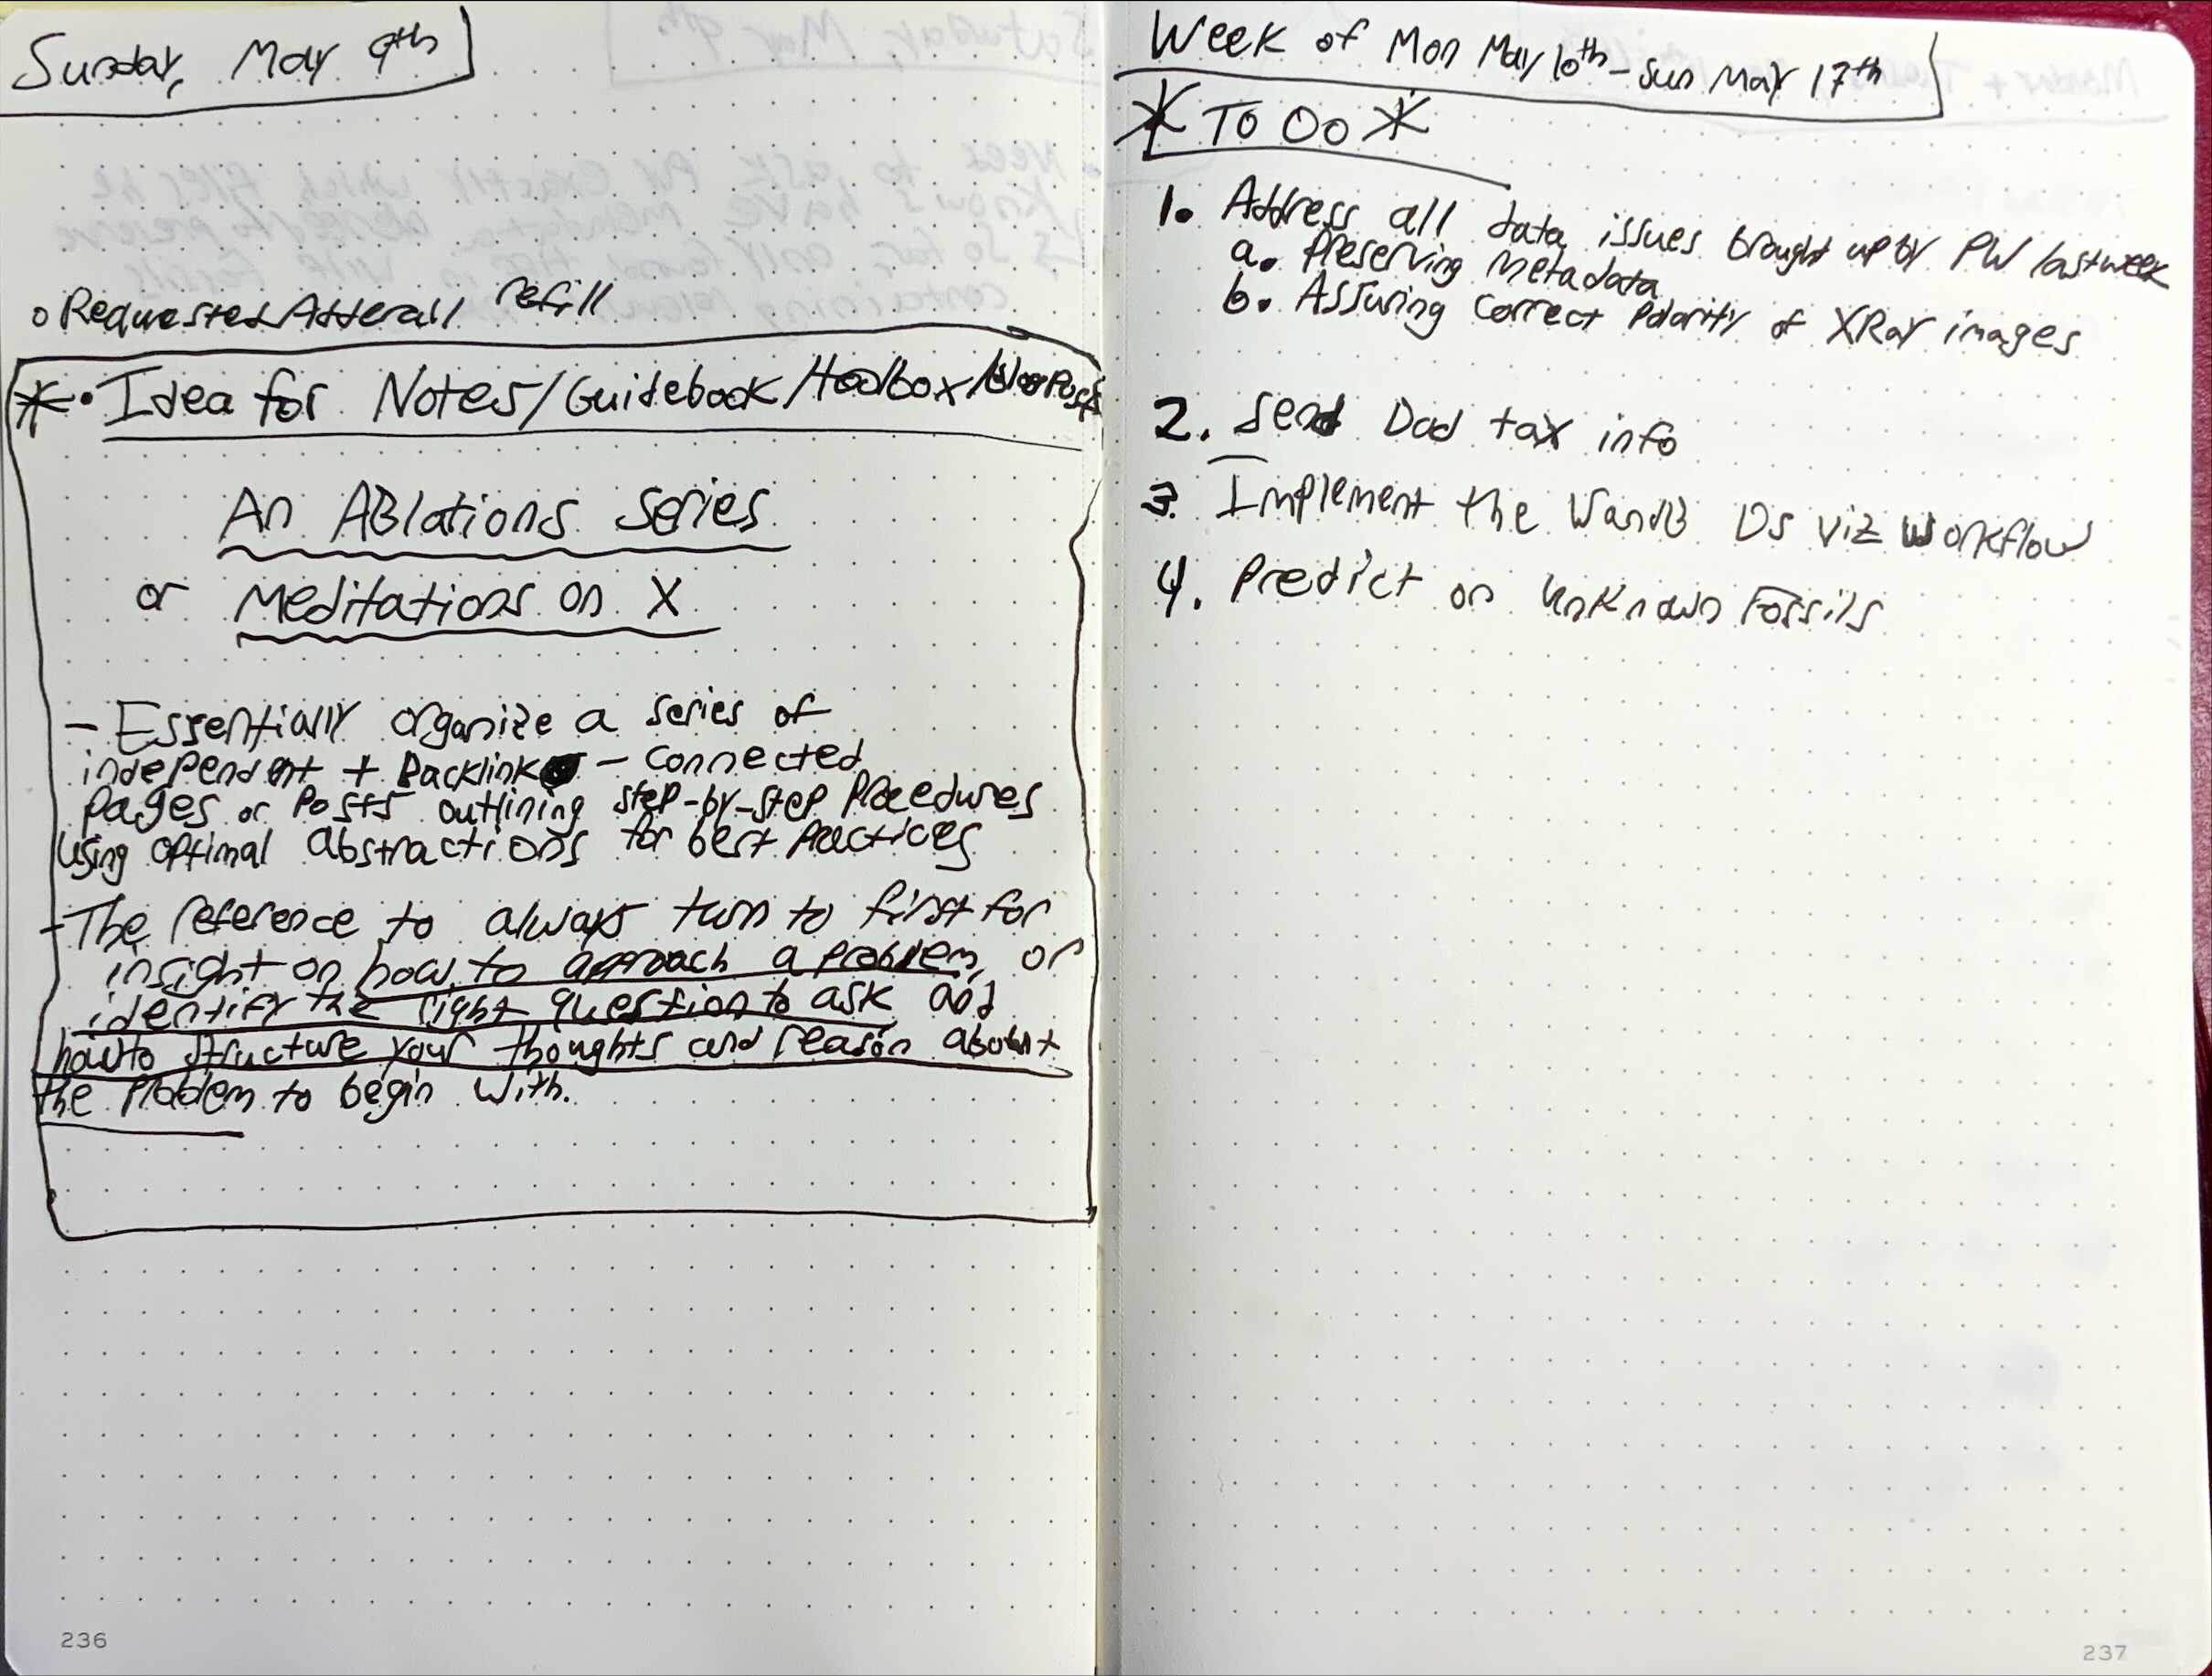 Sunday, May 9th
o Requested Adderall refill
* • Idea for Notes/Guidebook/Toolbox/Blog Posts
An ABlations Series
or Meditations on X
- Essentially organize a series of
independent + Backlink - connected
pages or posts outlining step-by-step Procedures
using optimal abstractions for best practices
- The reference to always turn to first for
insight on how to approach a problem, or
identify the right question to ask and
how to structure your thoughts and reason about
the problem to begin with.
236
Week of Mon May 10th - Sun May 17th
* To Do *
1. Address all data issues brought up by PW last week
a. Preserving metadata
b. Assuring correct Polarity of XRay images
2. Send Dad tax info
3. Implement the WandB Ds viz workflow
4. Predict on unknown Fossils
237